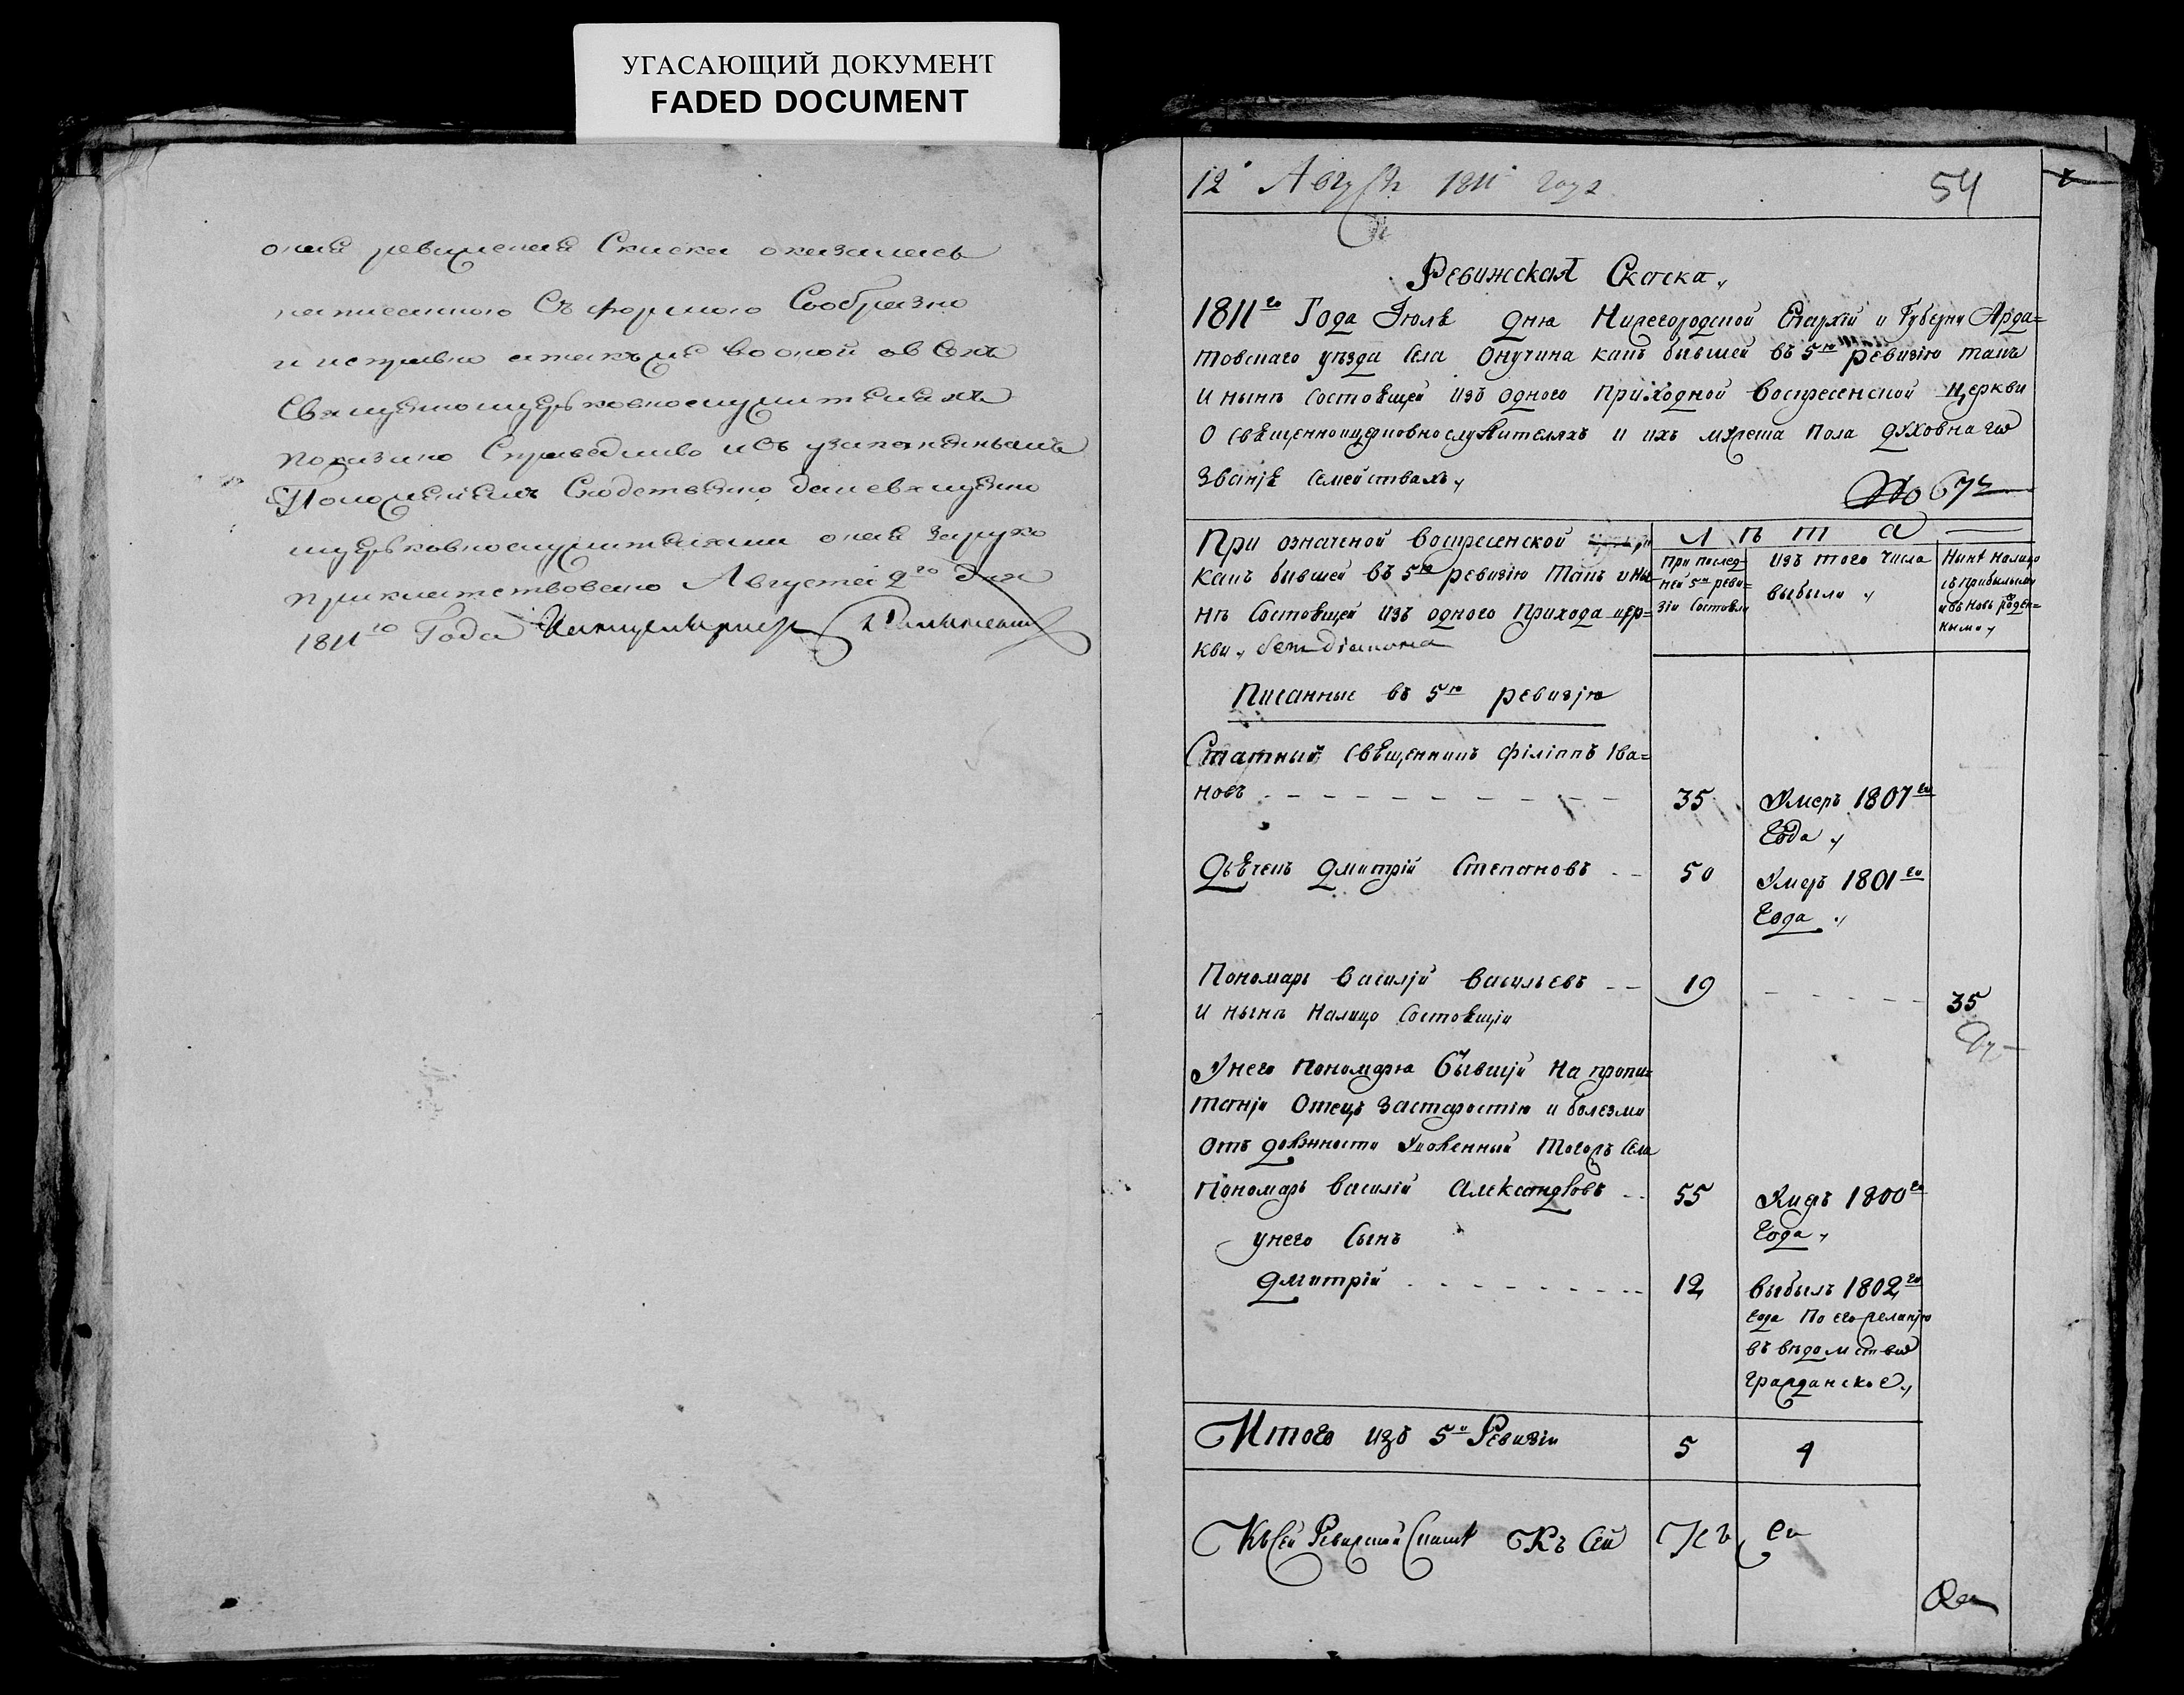 УГАСАЮЩИЙ ДОКУМЕНТ
FADED DOCUMENT
оная ревижская Скаска оказалась
написанною Съ формою Сообразно
и исправно а такъ же во оной о всехъ
Священноцерковнослужителяхъ
показано Справедливо и Съ узаконеннымъ
Положениемъ Сходственно да и священно
церьковнослужителями оная заруко
приклатствовано Августа 2го дня
1811го Года Канцеляристъ
12 Августа 1811 года
54
Ревижская Скаска
1811го Года Июля дня Нижегородской Епархiи и Губерни Арда=
товскаго уѣзда Села Онучина какъ бывшей въ 5ю ревизiю такъ
И нынѣ Состоящей изъ одного Приходной Воскресенской церкви
О священноцерковнослужителяхъ и ихъ мужеска Пола духовнаго
Званiя Семействахъ
№ 67
При означеной Воскресенской
Какъ бывшей въ 5ю ревизiю такъ и ны=
нѣ Состоящей изъ одного Прихода цер=
кви, безъ дiакона
Лѣта
При послед=
ней 5й реви=
зiи Состояли
Изъ того числа
выбыли
Нынѣ налицо
съ прибылыми
и въ новь рожден=
ными
Писанные въ 5ю ревизiю
Статный Священникъ Филiппъ Ива=
новъ
35
Умеръ 1807го
Года
Дьячекъ Дмитрiй Степановъ
50
Умеръ 1801го
Года
Пономарь Василiй Васильевъ
19
И нынѣ Налицо Состоящiй
35
У него Пономаря бывшiй На пропи=
танiи Отецъ За старостiю и болезми
Отъ должности Уволенный Тогожъ Села
Пономарь Василiй Александровъ
55
Умеръ 1800го
Года
у него Сынъ
Дмитрiй
12
Выбылъ 1802го
года По его желанiю
въ вѣдомство
Гражданское
Итого изъ 5й Ревизiи
5
4
Къ Сей Ревижской Скаскѣ Къ Сей
Къ Се